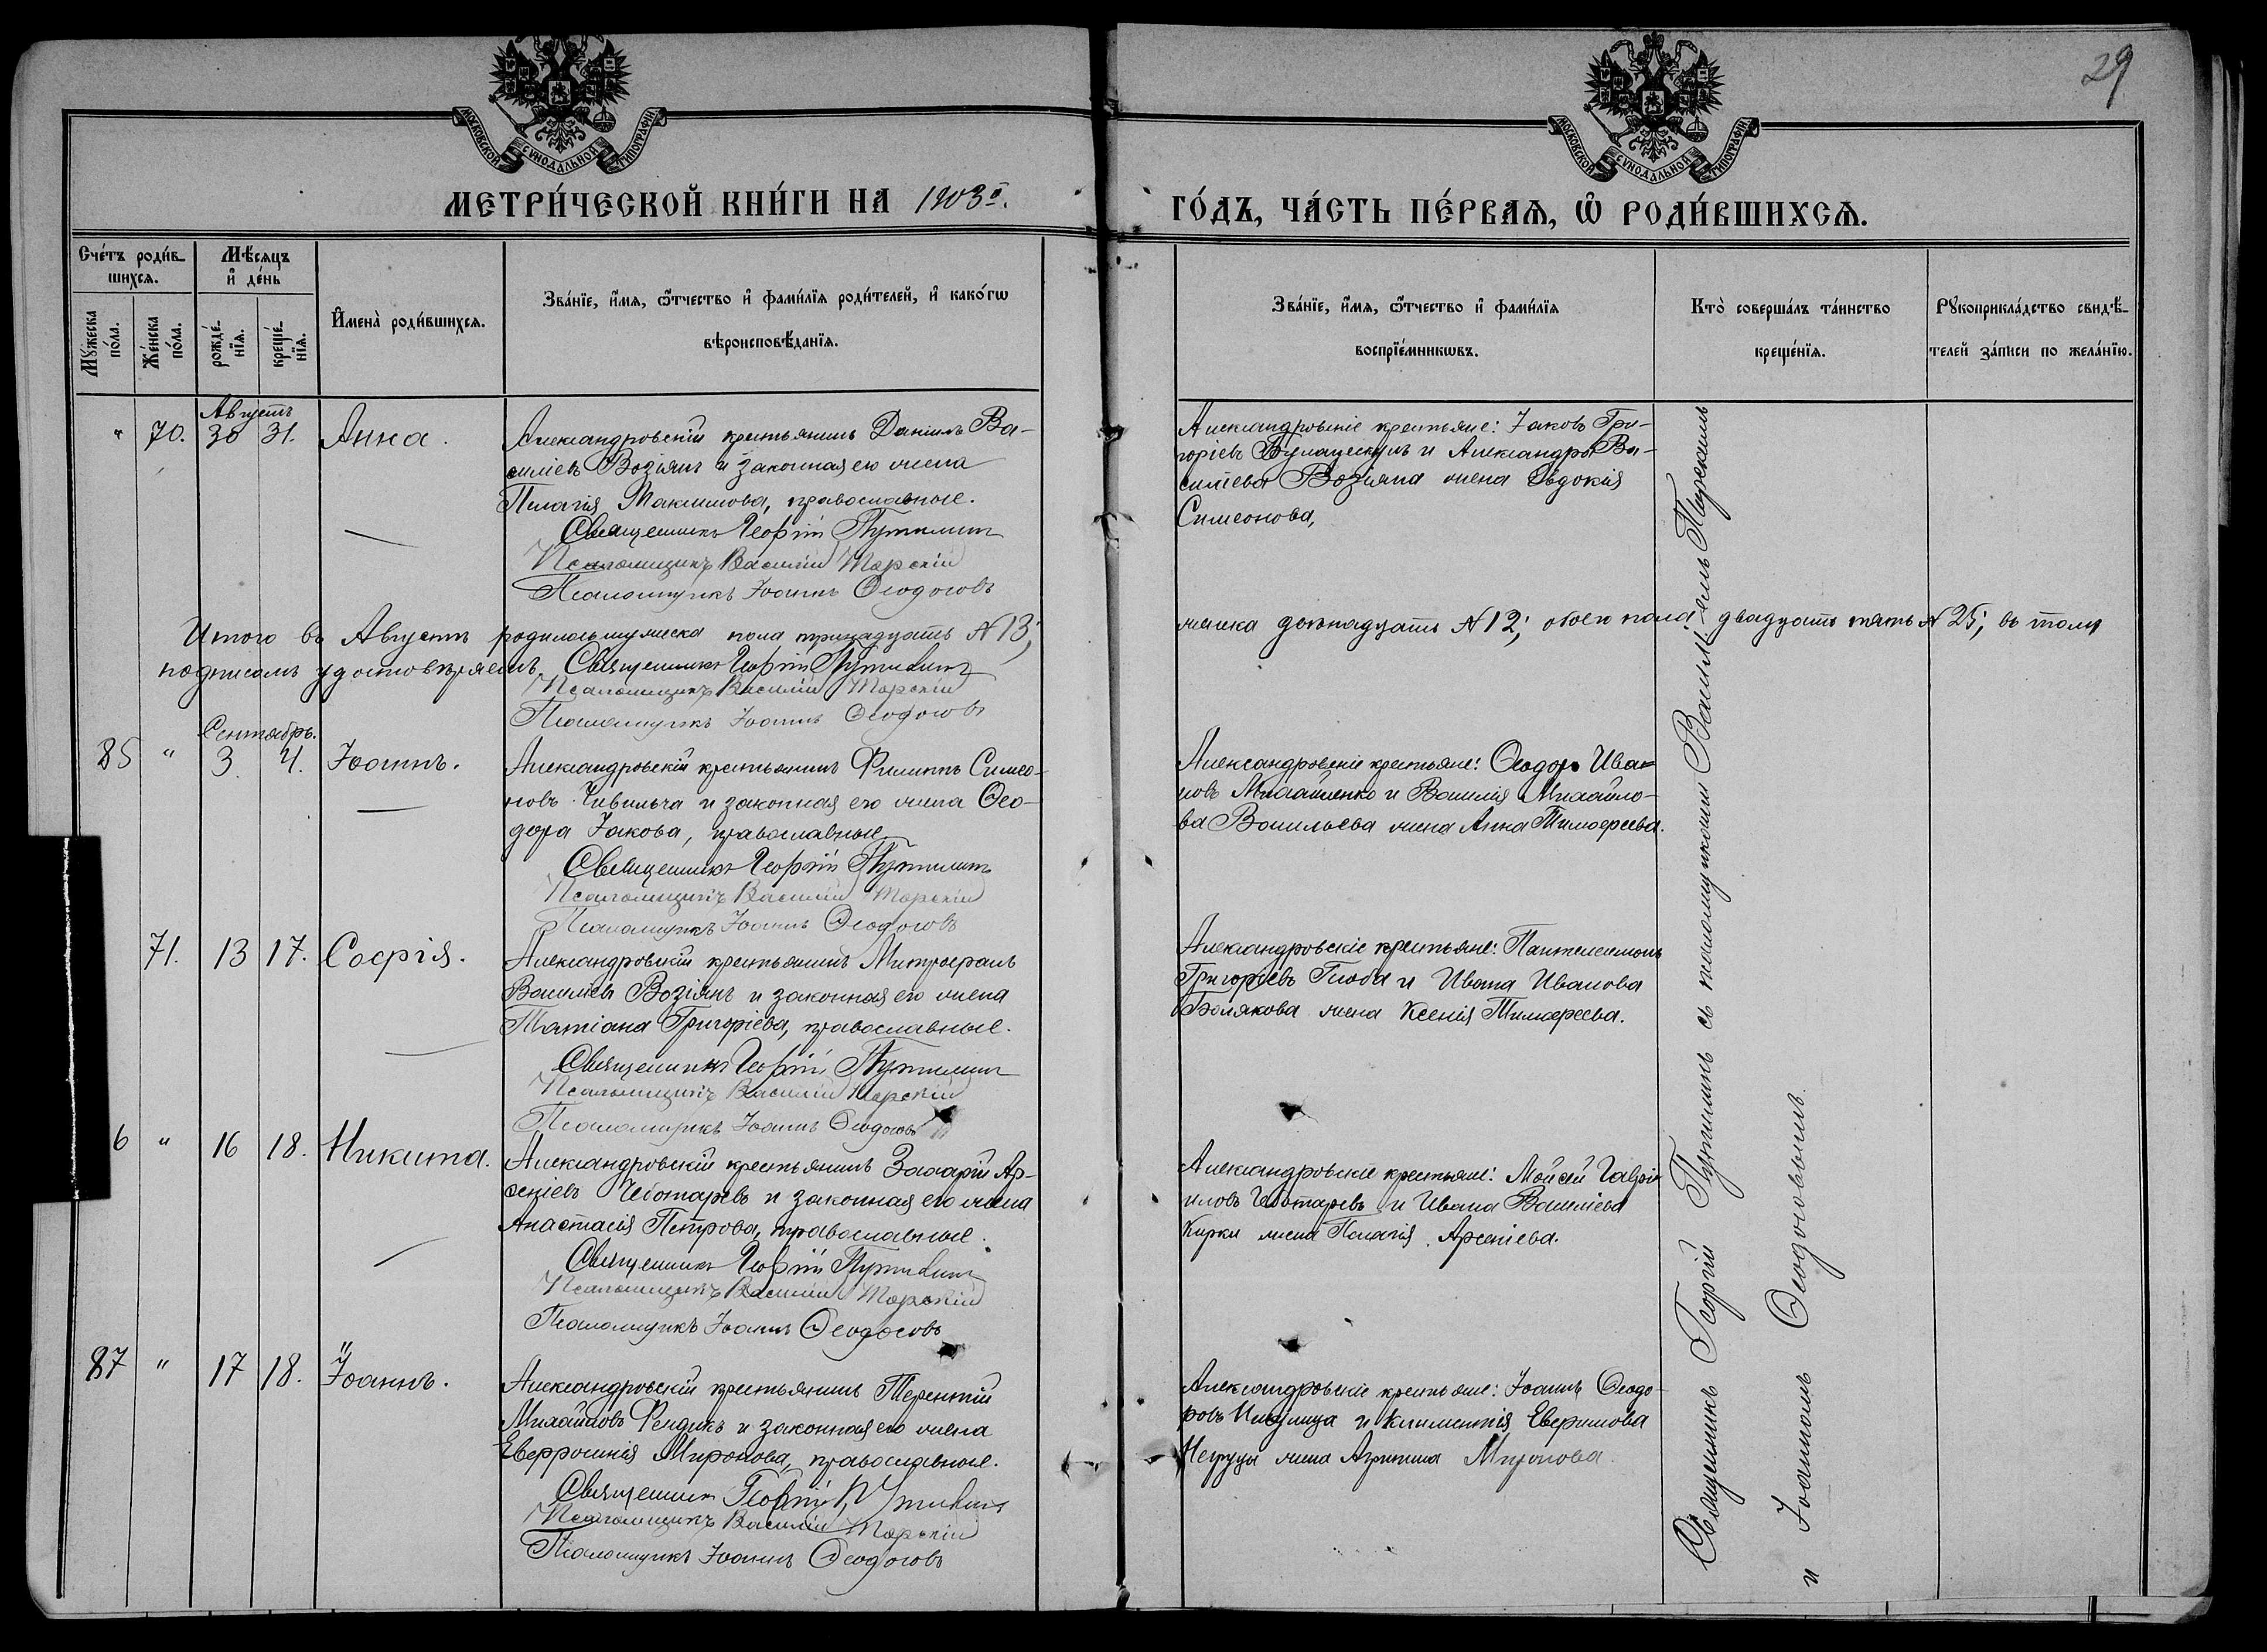 29
МОСКОВСКОЙ СѴНОДАЛЬНОЙ ТИПОГРАФІИ
МОСКОВСКОЙ СѴНОДАЛЬНОЙ ТИПОГРАФІИ
МЕТРИ́ЧЕСКОЙ КНИ́ГИ НА 1903й.
ГО́ДЪ, ЧА́СТЬ ПЕ́РВАЯ, Ѡ҆ РОДИ́ВШИХСЯ.
Сче́тъ роди́в-
шихся.
Мѣ́сяцъ
и҆ де́нь
Мꙋ́жеска
по́ла.
Же́нска
по́ла.
рожде́-
нїя.
креще́-
нїя.
И҆мена̀ роди́вшихся.
Зва́нїе, и҆́мя, ѻ҆́тчество и҆ фами́лїя роди́телей, и҆ како́гѡ
вѣроисповѣ́данїя.
Зва́нїе, и҆́мя, ѻ҆́тчество и҆ фами́лїя
воспрїе́мникѡвъ.
Кто̀ соверша́лъ та́инство
креще́нїя.
Рꙋкоприкла́дство свидѣ́-
телей за́писи по жела́нїю.
Августъ
" 70. 30 31. Анна.
Александровскій крестьянинъ Даніилъ Ва-
силіевъ Возіянъ и законная его жена
Пелагія Максимова, православные.
Священникъ Георгій Путилинъ
Псаломщикъ Василій Торскій
Псаломщикъ Іоаннъ Ѳеодосовъ
Александровскіе крестьяне: Іаковъ Гри-
горіевъ и Александра Ва-
силіева Возіяна жена Евдокія
Симеонова,
Итого въ Августѣ родилось мужеска пола тринадцать №13;
женска двѣнадцать №12; обоего пола двадцать пять №25; въ томъ
подписомъ удостовѣряемъ, Священникъ Георгій Путилинъ
Псаломщикъ Василій Торскій
Псаломщикъ Іоаннъ Ѳеодосовъ
Сентябрь.
85 " 3. 4. Іоаннъ.
Александровскій крестьянинъ Филиппъ Симео-
новъ Чивильча и законная его жена Ѳео-
дора Іакова, православные.
Священникъ Георгій Путилинъ
Псаломщикъ Василій Торскій
Псаломщикъ Іоаннъ Ѳеодосовъ
Александровскіе крестьяне: Ѳеодоръ Ива-
новъ и Василія Михайло-
ва Васильева жена Анна Тимоѳеева.
71. 13 17. Софія.
Александровскій крестьянинъ Митрофанъ
Василіевъ Возіянъ и законная его жена
Татіана Григоріева, православные.
Священникъ Георгій Путилинъ
Псаломщикъ Василій Торскій
Псаломщикъ Іоаннъ Ѳеодосовъ
Александровскіе крестьяне: Пантелеимонъ
Григоріевъ Глоба и Ивана Иванова
Болякова жена Ксенія Тимофеева.
6 " 16 18. Никита.
Александровскій крестьянинъ Захарій Ар-
сеніевъ Чеботаревъ и законная его жена
Анастасія Петрова, православные.
Священникъ Георгій Путилинъ
Псаломщикъ Василій Торскій
Псаломщикъ Іоаннъ Ѳеодосовъ
Александровскіе крестьяне: Моисей Гаврі-
иловъ Чеботаревъ и Ивана Василіева
Кирки жена Пелагія Арсеніева.
87 " 17 18. Іоаннъ.
Александровскій крестьянинъ Терентій
Михайловъ и законная его жена
Евфросинія Миронова, православные.
Священникъ Георгій Путилинъ
Псаломщикъ Василій Торскій
Псаломщикъ Іоаннъ Ѳеодосовъ
Александровскіе крестьяне: Іоаннъ Ѳеодо-
ровъ и Климентія Евфимова
Негруцы жена Агрипина Миронова.
Священникъ Георгій Путилинъ съ псаломщиками Василіемъ Торскимъ
и Іоанномъ Ѳеодосовымъ.